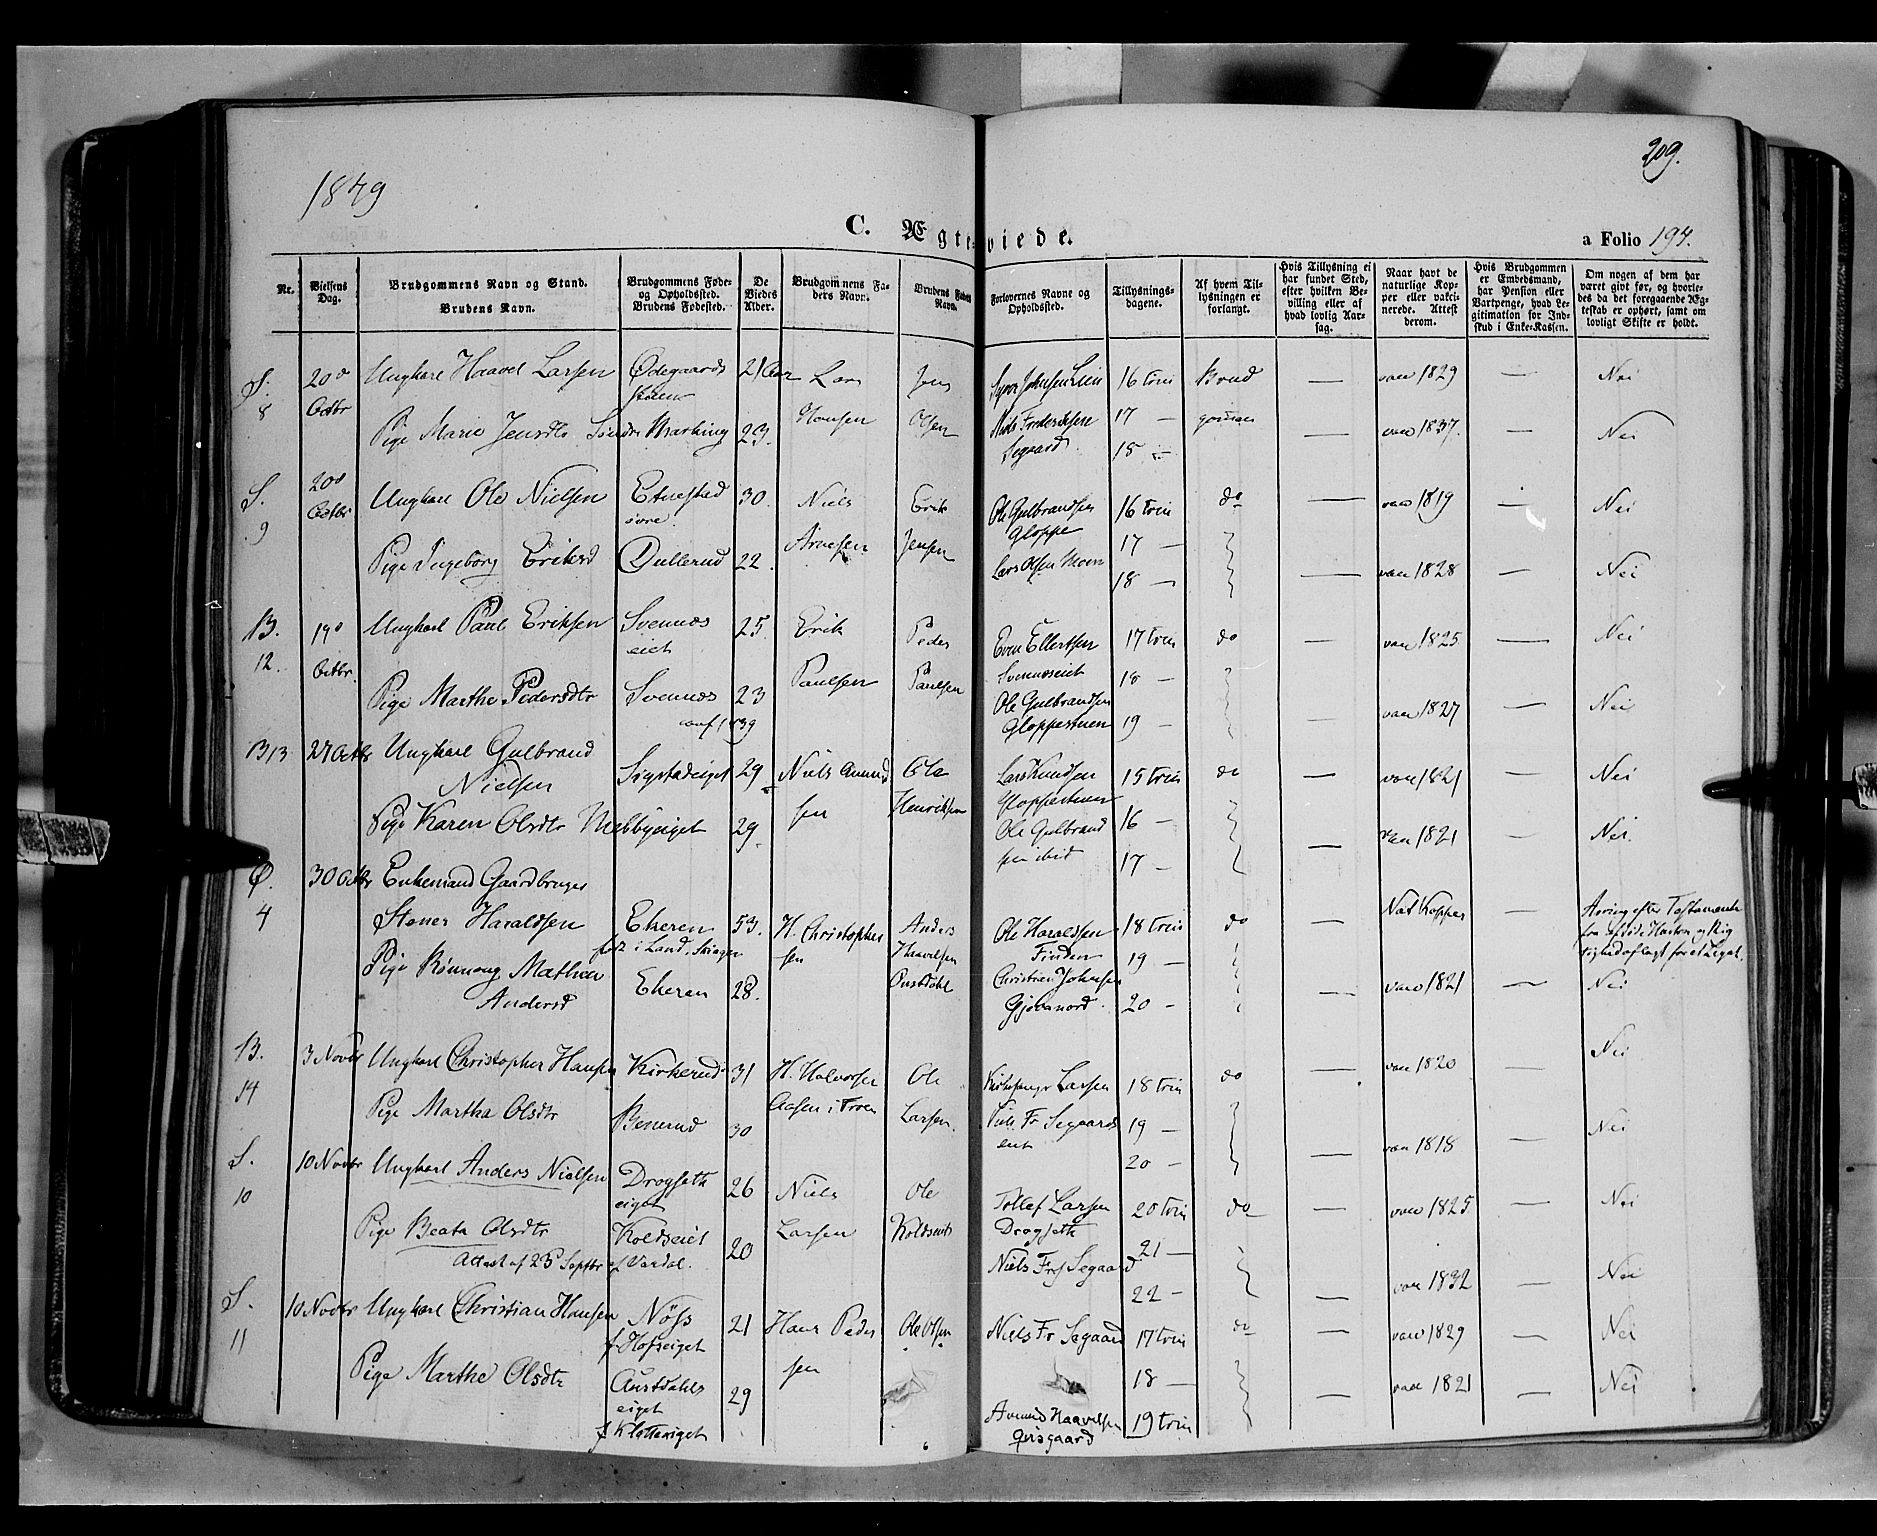 1849
209.
C. Ægteviede.
a Folio 194.
Nr.
Vielsens Dag.
Brudgommens Navn og Stand.
Brudens Navn.
Brudgommens Føde- og Opholdssted.
Brudens Fødested.
De Viedes Alder.
Brudgommens Faders Navn.
Brudens Faders Navn.
Forlovernes Navne og Opholdssted.
Tillysnings-dagene.
Af hvem Tillysningen er forlangt.
Hvis Tillysning ei har fundet Sted, efter hvilken Bevilling eller af hvad lovlig Aarsag.
Naar havt de naturlige Kopper eller vaccinerede. Attest derom.
Hvis Brudgommen er Embedsmand, har Pension eller Vartpenge, hvad Legitimation for Indskud i Enke-Kassen.
Om nogen af dem har været givt før, og hvorledes da det foregaaende Ægteskab er ophørt, samt om lovligt Skifte er holdt.
S. 20de Ungkarl Haavel Larsen Ødegaards 21 Aar Lars Jens 16 trin Brud — vacc 1829 — Nei
8 Octbr Pige Marie Jensdtr Søndre Markeng 23. Hansen Olsen Niels Fredriksen 17 — gommen — vacc 1837. — Nei
Segaard 18 —
S. 20de Ungkarl Ole Nielsen Etnestad 30 Niels Erik Ole Gulbrandsen 16 trin do — vacc 1819 — Nei
9 Octbr øvre Gloppe
Pige Ingeborg Eriksd Dullerud 22. Arnesen Jensen 17 —
Lars Olsen Moen 18 — — vacc 1828 — Nei
B. 19de Ungkarl Paul Eriksen Svennes 25. Erik Peder Even Ellertsen 17 trin do — vacc 1825 — Nei
12. Octbr. eiet Paulsen Paulsen Svennæseiet 18 —
Pige Marthe Pedersdtr Svennes 23 Ole Gulbrandsen
conf. 1839 Gloppestuen 19 — — vacc 1827 — Nei
B 13 27 Octbr Ungkarl Gulbrand
Nielsen Sigstadeiget 29 Niels Amund Ole Lars Knudsen 15 trin do — vacc 1821 — Nei
sen Henriksen Gloppestuen
Pige Karen Olsdtr Mebbyeiget 29. Ole Gulbrand 16 —
sen ibid 17 — — vacc 1821 — Nei.
Ø. 30 Octbr Enkemand Gaardbruger
4 Stener Haraldsen Ekeren 53. H. Christopher Anders Ole Haraldsen 18 trin do — Nat Kopper —
født i Land sen Haavelsen Finden 19 —
Pige Rønnaug Mathea Ekeren 28. Christian Johnsen — vacc 1821 — Nei
Andersd Gjøvanord. 20 —
B. 3 Novbr Ungkarl Christopher Hansen Kirkerud 31 H. Halvorsen Ole Larsen 18 trin do — vacc 1820 — Nei
14 Pige Martha Olsdtr Benerud 30 Aasen i Froen Larsen. Niels Fr Segaard 19 —
20 — — vacc 1818 — Nei
S. 10 Novbr Ungkarl Anders Nielsen Drogseth 26 Niels Ole Tollef Larsen 20 trin do — vacc 1825 — Nei
10 eiget Drogseth
Pige Beata Olsdtr Koldseiet 20 Larsen 21 —
Attest af 23 Septbr af Vardal. Niels Fr Segaard 22 — vacc 1832 — Nei
S. 10 Novbr Ungkarl Christian Hansen Nøss 21 Hans Peder Ole Olsen Niels Fr Segaard 17 trin do — vacc 1829 — Nei
11 f Hofseiget sen
Pige Marthe Olsdtr Austdahls 29 18 — — vacc 1821 — Nei
eiget Amund Haavelsen 19 trin
f Klotteriget